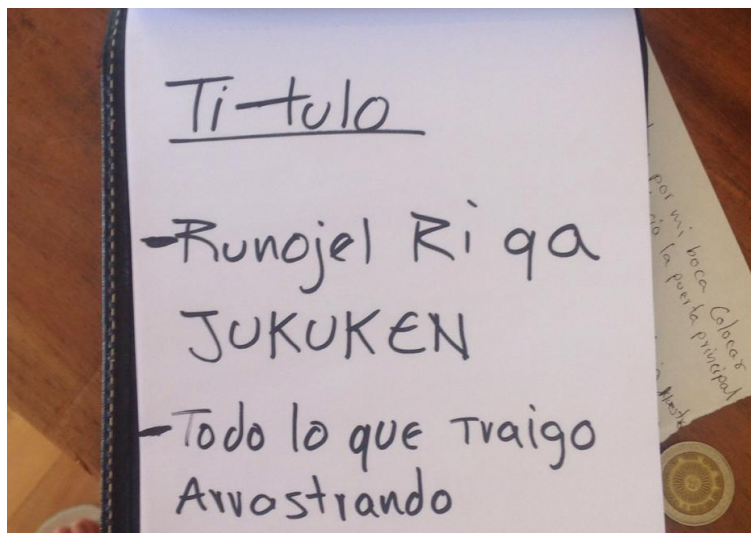 Titulo
-Runojel Ri qa
JUKUKEN
-Todo lo que Traigo
Arrastrando
por mi boca Colocar
la puerta principal